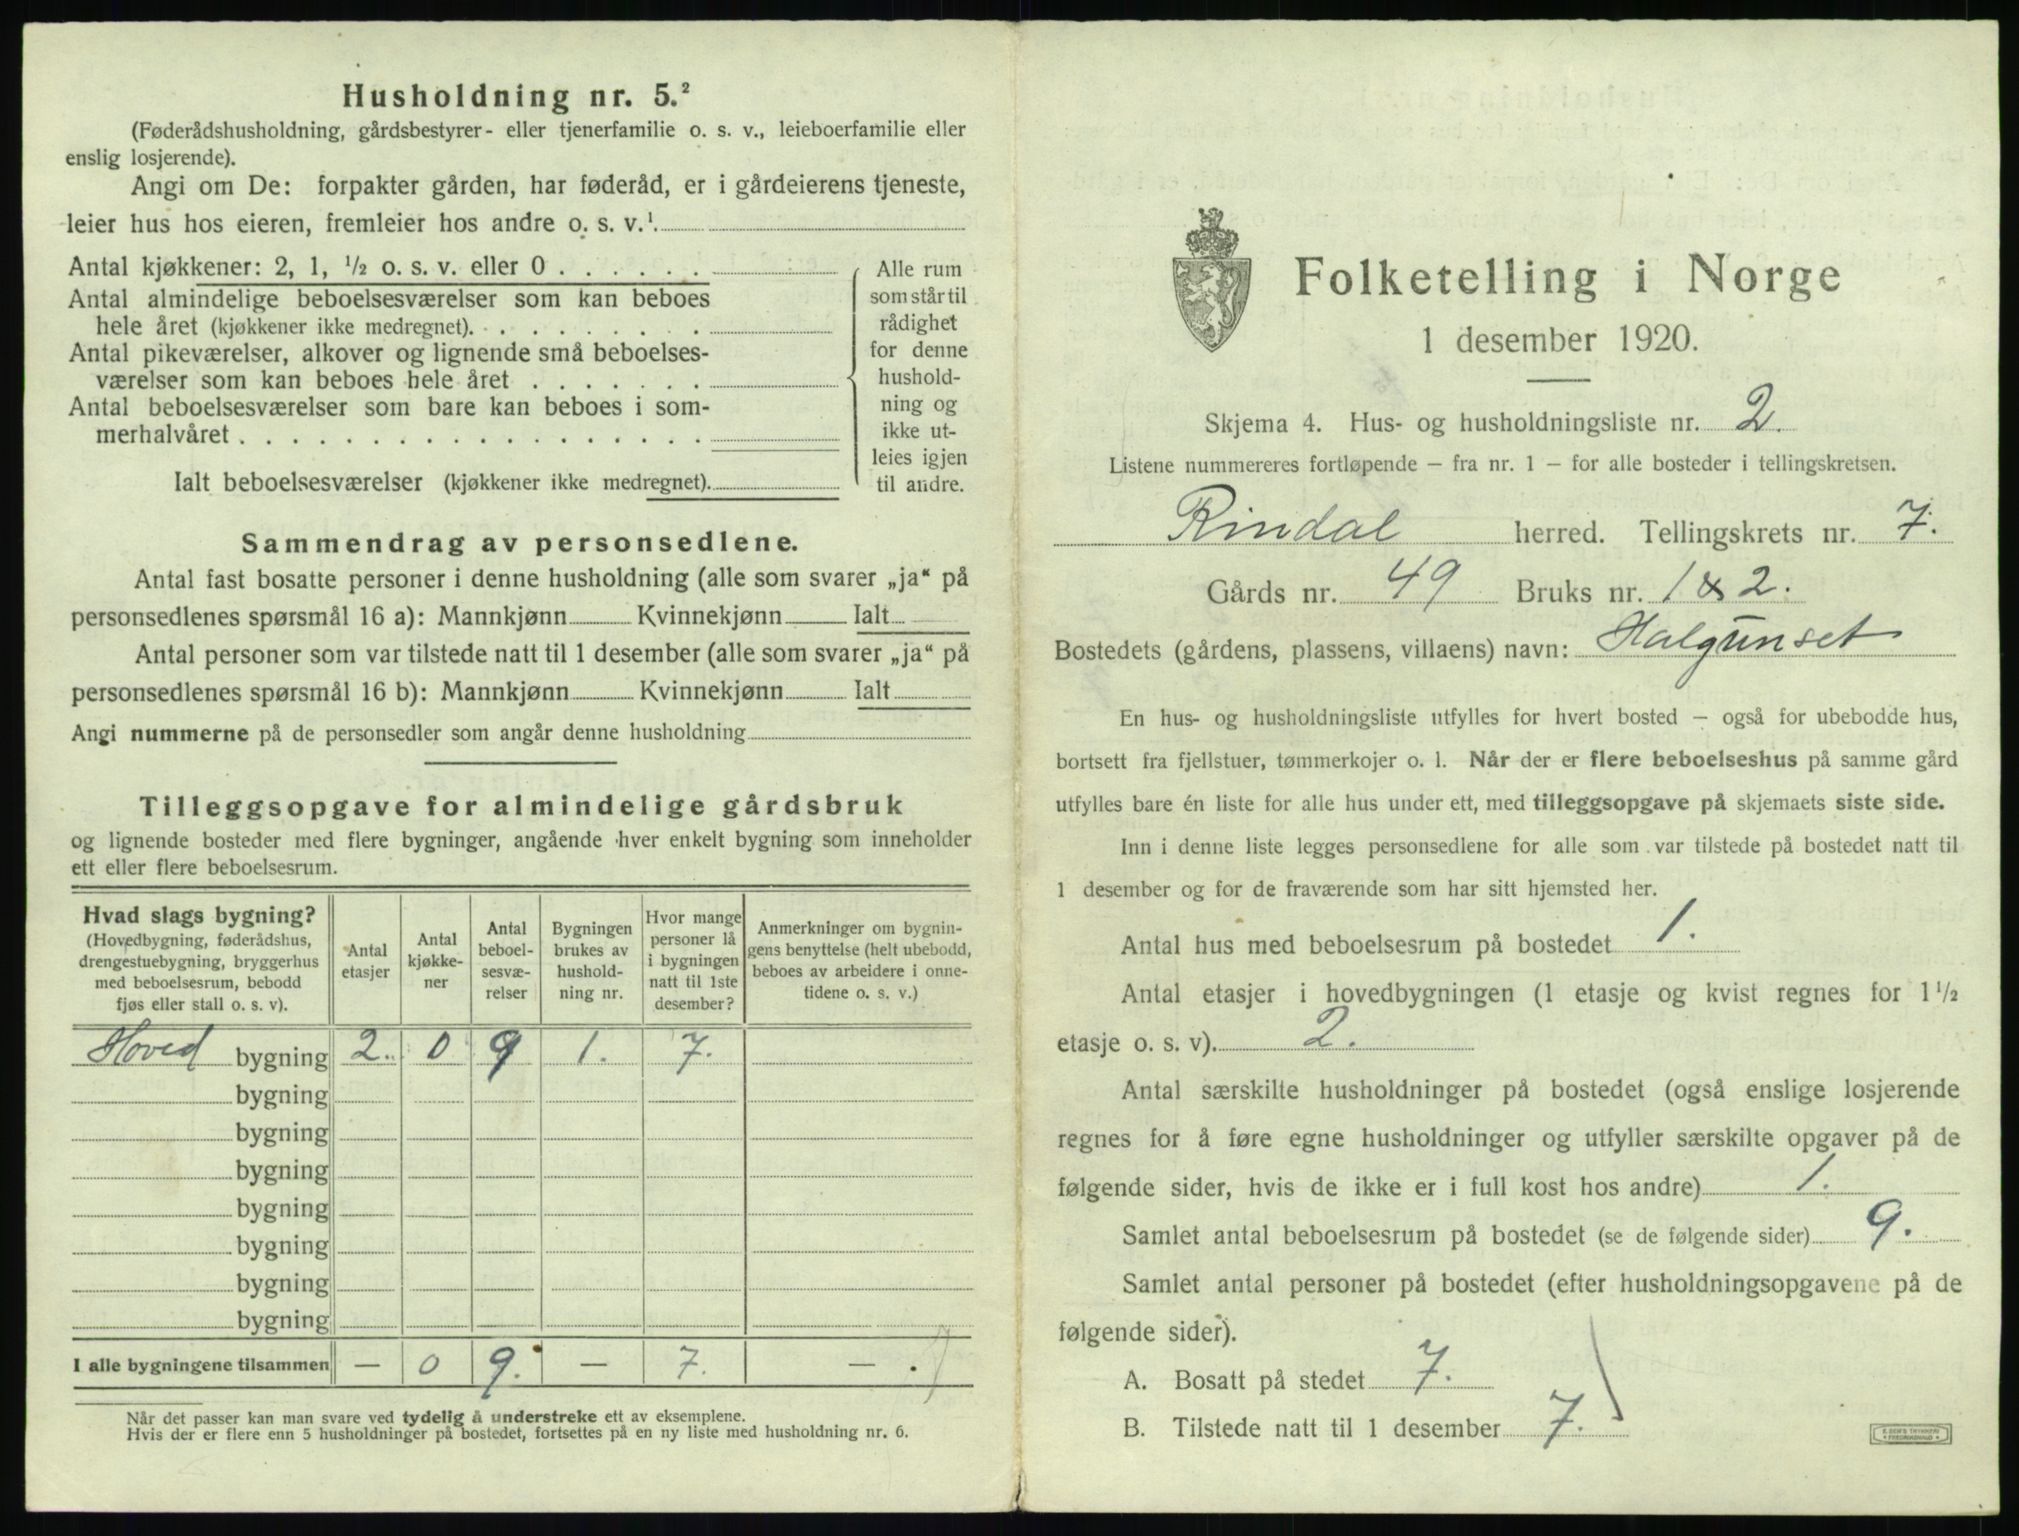 Husholdning nr. 5.²
(Føderådshusholdning, gårdsbestyrer- eller tjenerfamilie o. s. v., leieboerfamilie eller
enslig losjerende).
Angi om De: forpakter gården, har føderåd, er i gårdeierens tjeneste,
leier hus hos eieren, fremleier hos andre o. s. v.¹.
Antal kjøkkener: 2, 1, ½ o. s. v. eller 0 . . . . . .
Antal almindelige beboelsesværelser som kan beboes
hele året (kjøkkener ikke medregnet). . . . . . . . .
Antal pikeværelser, alkover og lignende små beboelses-
værelser som kan beboes hele året . . . . . . .
Antal beboelsesværelser som bare kan beboes i som-
merhalvåret . . . . . . . . . . . . . . . . . .
Ialt beboelsesværelser (kjøkkener ikke medregnet).
Alle rum
som står til
rådighet
for denne
hushold-
ning og
ikke ut-
leies igjen
til andre.
Sammendrag av personsedlene.
Antal fast bosatte personer i denne husholdning (alle som svarer „ja“ på
personsedlenes spørsmål 16 a): Mannkjønn Kvinnekjønn Ialt
Antal personer som var tilstede natt til 1 desember (alle som svarer „ja“ på
personsedlenes spørsmål 16 b): Mannkjønn Kvinnekjønn Ialt
Angi nummerne på de personsedler som angår denne husholdning
Tilleggsopgave for almindelige gårdsbruk
og lignende bosteder med flere bygninger, angående hver enkelt bygning som inneholder
ett eller flere beboelsesrum.
Hvad slags bygning?
(Hovedbygning, føderådshus,
drengestuebygning, bryggerhus
med beboelsesrum, bebodd
fjøs eller stall o. s. v).
Antal
etasjer
Antal
kjøkke-
ner
Antal
beboel-
sesvæ-
relser
Bygningen
brukes av
hushold-
ning nr.
Hvor mange
personer lå
i bygningen
natt til 1ste
desember?
Anmerkninger om bygnin-
gens benyttelse (helt ubebodd,
beboes av arbeidere i onne-
tidene o. s. v.)
Hoved bygning 2. 0 9 1. 7.
bygning
bygning
bygning
bygning
bygning
bygning
bygning
I alle bygningene tilsammen — 0 9. — 7. —
Når det passer kan man svare ved tydelig å understreke ett av eksemplene.
Hvis der er flere enn 5 husholdninger på bostedet, fortsettes på en ny liste med husholdning nr. 6.
Folketelling i Norge
1 desember 1920.
Skjema 4. Hus- og husholdningsliste nr. 2.
Listene nummereres fortløpende – fra nr. 1 – for alle bosteder i tellingskretsen.
Rindal herred. Tellingskrets nr. 7.
Gårds nr. 49 Bruks nr. 1 & 2.
Bostedets (gårdens, plassens, villaens) navn: Halgunset
En hus- og husholdningsliste utfylles for hvert bosted – også for ubebodde hus,
bortsett fra fjellstuer, tømmerkojer o. l. Når der er flere beboelseshus på samme gård
utfylles bare én liste for alle hus under ett, med tilleggsopgave på skjemaets siste side.
Inn i denne liste legges personsedlene for alle som var tilstede på bostedet natt til
1 desember og for de fraværende som har sitt hjemsted her.
Antal hus med beboelsesrum på bostedet 1.
Antal etasjer i hovedbygningen (1 etasje og kvist regnes for 1½
etasje o. s. v). 2.
Antal særskilte husholdninger på bostedet (også enslige losjerende
regnes for å føre egne husholdninger og utfyller særskilte opgaver på de
følgende sider, hvis de ikke er i full kost hos andre) 1.
Samlet antal beboelsesrum på bostedet (se de følgende sider) 9.
Samlet antal personer på bostedet (efter husholdningsopgavene på de
følgende sider).
A. Bosatt på stedet 7.
B. Tilstede natt til 1 desember 7.